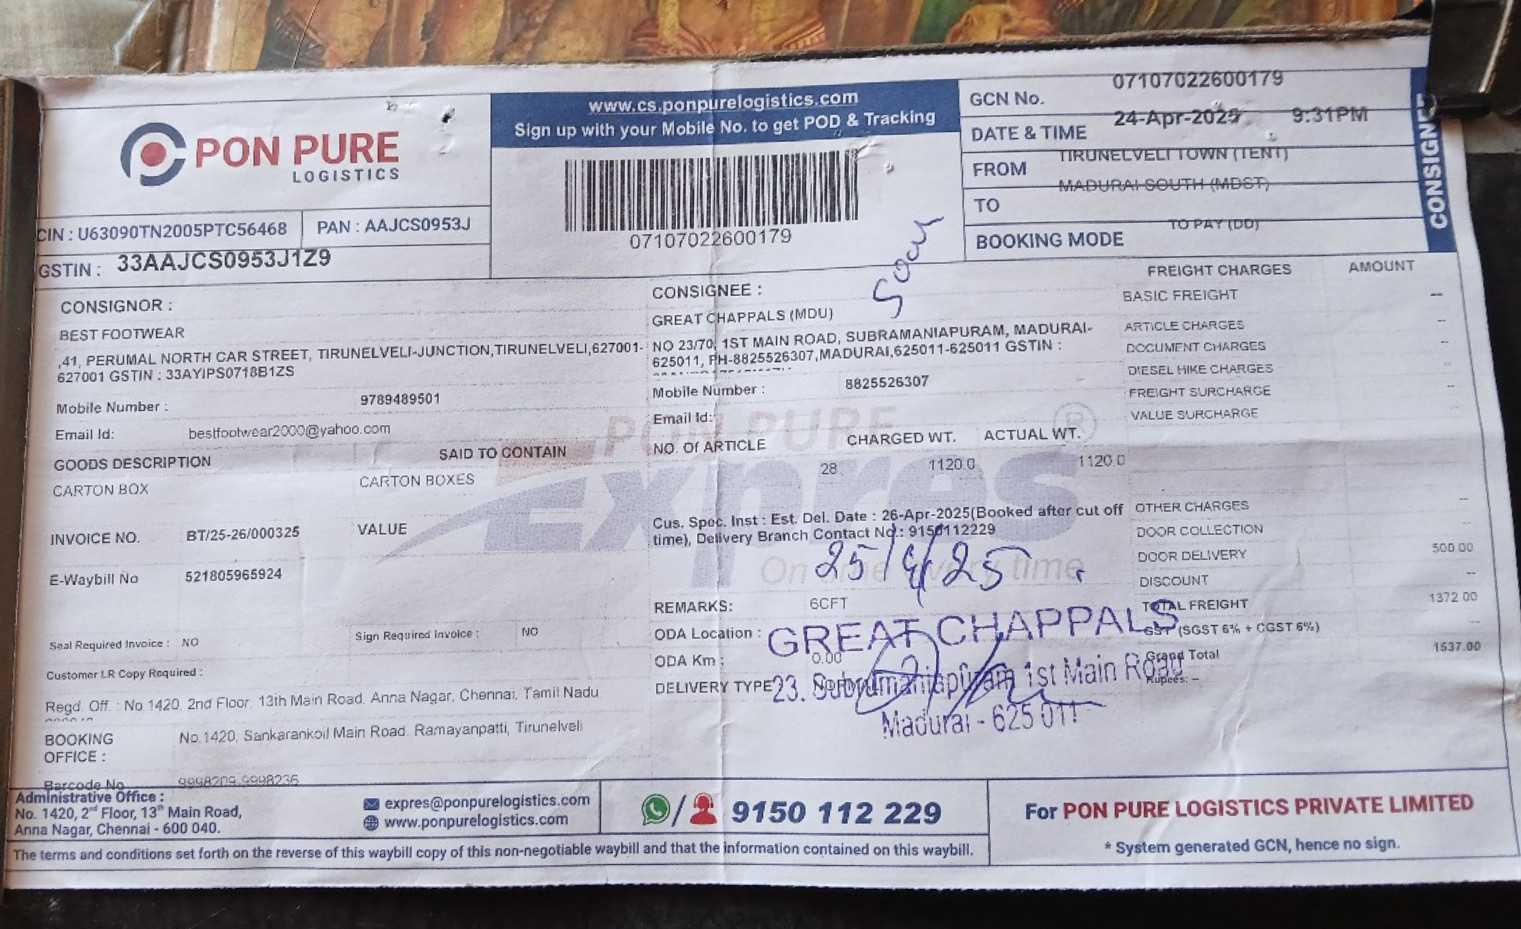 PON PURE
LOGISTICS
CIN : U63090TN2005PTC56468
PAN : AAJCS0953J
GSTIN : 33AAJCS0953J1Z9
www.cs.ponpurelogistics.com
Sign up with your Mobile No. to get POD & Tracking
07107022600179
GCN No. 07107022600179
DATE & TIME 24-Apr-2025 9:31PM
FROM TIRUNELVELI TOWN (TENT)
TO MADURAI SOUTH (MDST)
BOOKING MODE TO PAY (DD)
CONSIGNEE
CONSIGNOR :
BEST FOOTWEAR
,41, PERUMAL NORTH CAR STREET, TIRUNELVELI-JUNCTION,TIRUNELVELI,627001-
627001 GSTIN : 33AYIPS0718B1ZS
Mobile Number : 9789489501
Email Id: bestfootwear2000@yahoo.com
GOODS DESCRIPTION SAID TO CONTAIN
CARTON BOX CARTON BOXES
INVOICE NO. BT/25-26/000325 VALUE
E-Waybill No 521805965924
Seal Required Invoice : NO Sign Required Invoice : NO
Customer LR Copy Required :
Regd. Off. : No 1420, 2nd Floor, 13th Main Road, Anna Nagar, Chennai, Tamil Nadu
BOOKING
OFFICE :
No.1420, Sankarankoil Main Road, Ramayanpatti, Tirunelveli
Barcode No 9998209-9998236
CONSIGNEE :
GREAT CHAPPALS (MDU)
NO 23/70, 1ST MAIN ROAD, SUBRAMANIAPURAM, MADURAI-
625011, PH-8825526307,MADURAI,625011-625011 GSTIN :
Mobile Number : 8825526307
Email Id:
PON PURE ®
Expres
On time every time
NO. Of ARTICLE CHARGED WT. ACTUAL WT.
28 1120.0 1120.0
Cus. Spec. Inst : Est. Del. Date : 26-Apr-2025(Booked after cut off
time), Delivery Branch Contact No.: 9150112229
25/4/25
REMARKS: 6CFT
ODA Location :
ODA Km : 0.00
DELIVERY TYPE
GREAT CHAPPALS
23, Subrumaniapuram 1st Main Road
Madurai - 625 011
FREIGHT CHARGES AMOUNT
BASIC FREIGHT --
ARTICLE CHARGES --
DOCUMENT CHARGES --
DIESEL HIKE CHARGES --
FREIGHT SURCHARGE --
VALUE SURCHARGE --
OTHER CHARGES --
DOOR COLLECTION --
DOOR DELIVERY 500.00
DISCOUNT --
TOTAL FREIGHT 1372.00
GST (SGST 6% + CGST 6%) --
Grand Total 1537.00
Rupees: --
Administrative Office :
No. 1420, 2nd Floor, 13th Main Road,
Anna Nagar, Chennai - 600 040.
expres@ponpurelogistics.com
www.ponpurelogistics.com
9150 112 229
The terms and conditions set forth on the reverse of this waybill copy of this non-negotiable waybill and that the information contained on this waybill.
For PON PURE LOGISTICS PRIVATE LIMITED
* System generated GCN, hence no sign.